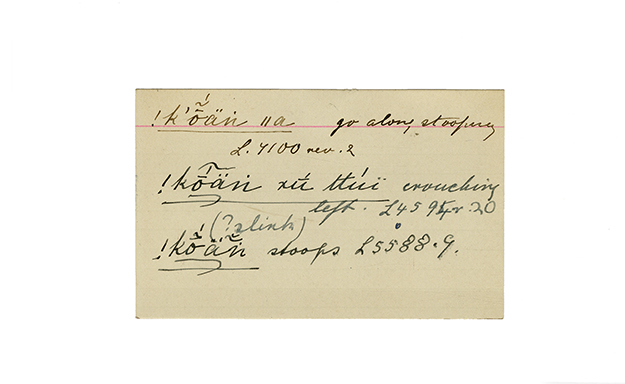 !k'ṓ̃än ǁa go along stooping
L. 4100 rev. 2
!kṓ̄än xú̆ ttúï crouching
left. L 4594r. 20
(? slink)
!kṓä̃ṅ stoops L 5588. 9.